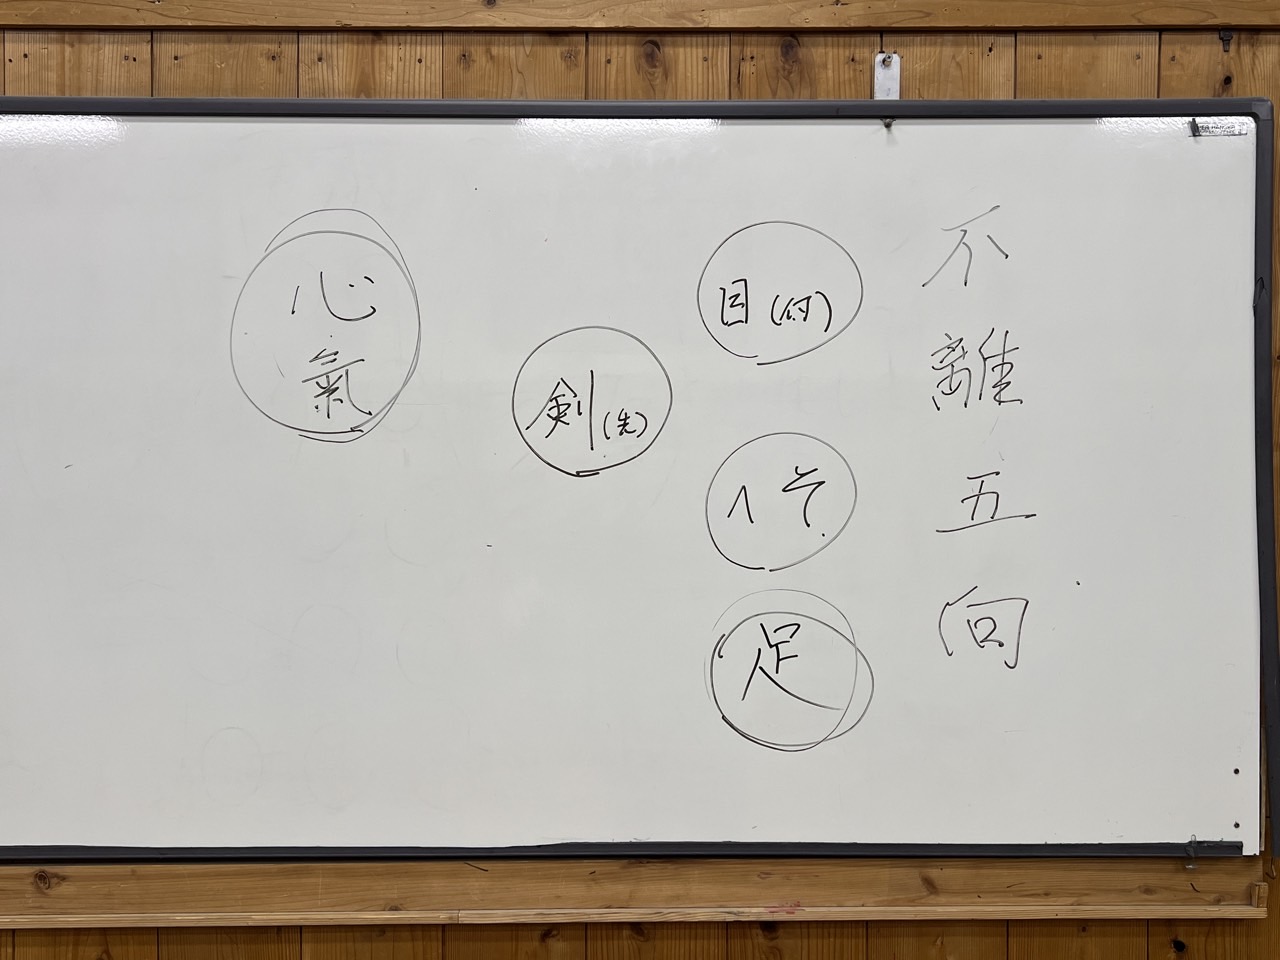 不離五向
目(付)
へそ
足
剣(先)
心
氣